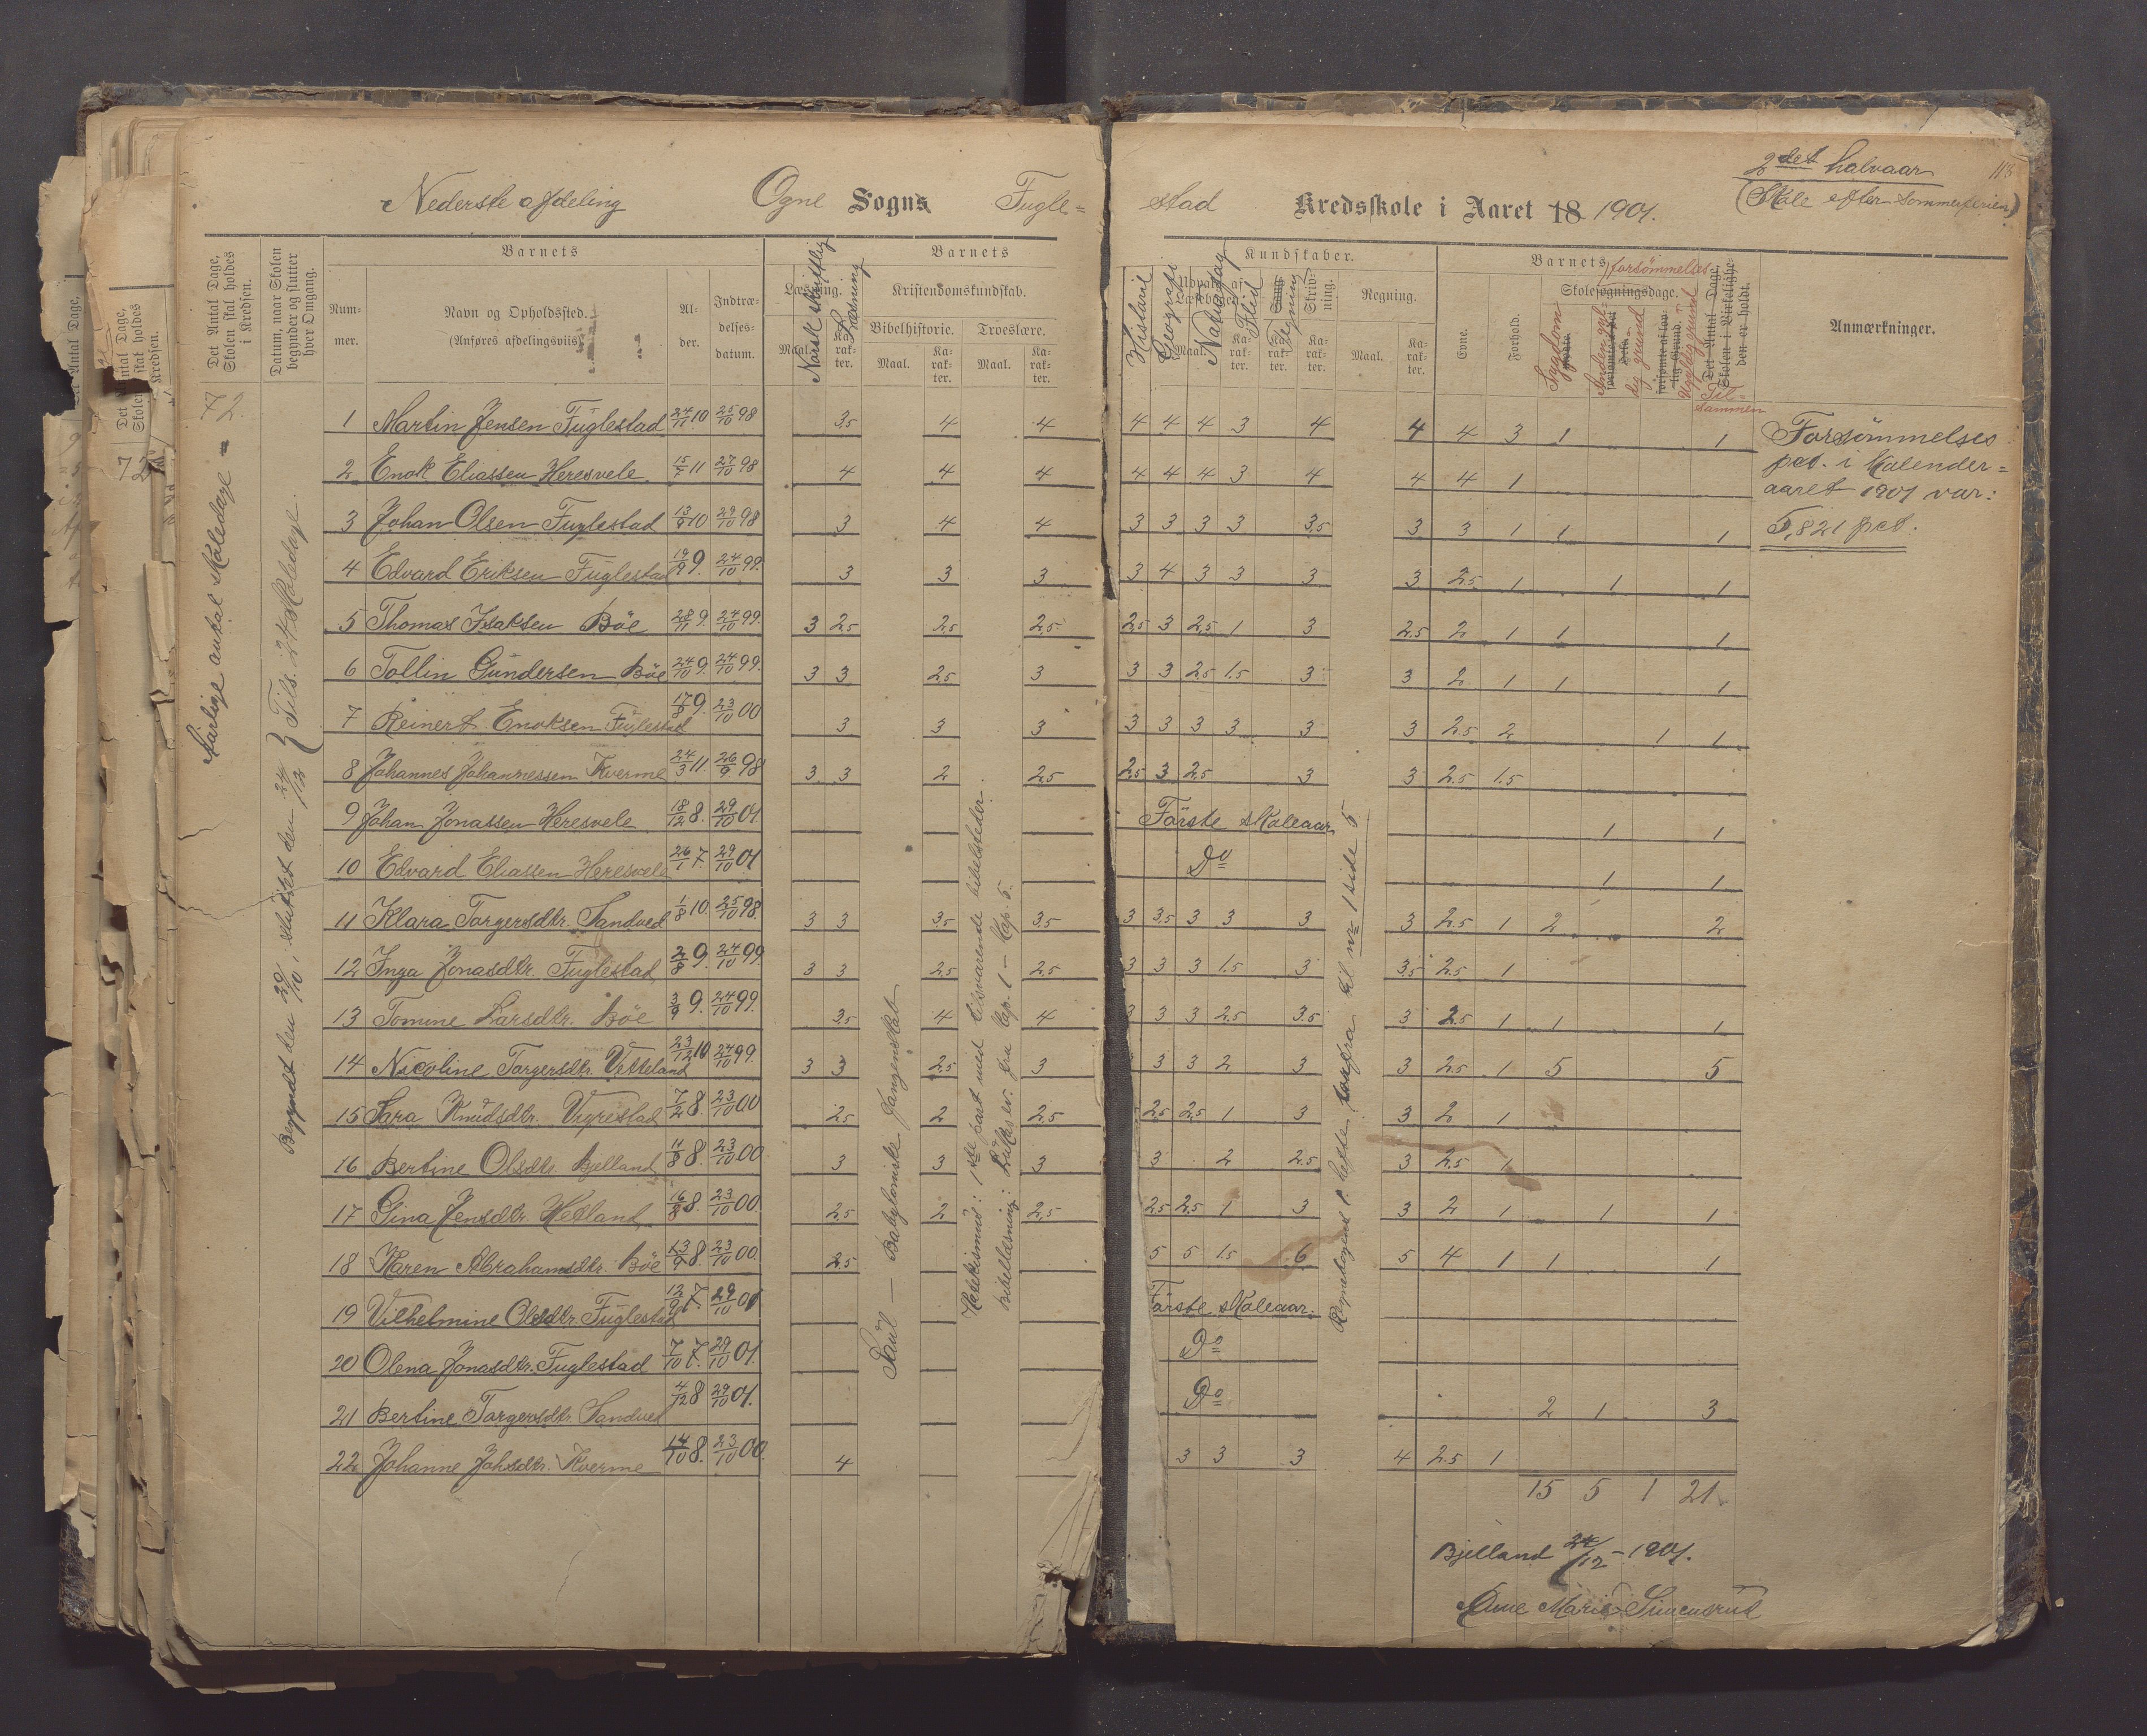 2det halvaar 113
(Skole efter sommerferien)
Nederste afdeling Ogne Sogns Fugle=
stad Kredsskole i Aaret 18 1901.
Det Antal Dage, Skolen skal holdes i Kredsen.
Datum, naar Skolen begynder og slutter hver Omgang.
Barnets
Num-mer.
Navn og Opholdssted.
(Anføres afdelingsvis)
Al-der.
Indtræ-delses-datum.
Barnets
Læsning.
Norsk skriftlig
Læsning
Kristendomskundskab.
Bibelhistorie. Troeslære.
Maal. Ka-rak-ter. Maal. Ka-rak-ter. Maal. Ka-rak-ter.
Kundskaber.
Historie Geografi Naturfag Flid Sang Tegning Skriv-ning. Regning.
Maal. Ka-rak-ter. Ka-rak-ter. Ka-rak-ter. Maal. Ka-rak-ter.
Barnets forsömmelses
Evne. Forhold.
Skolesøgningsdage.
Sygdom Anden gyldig grund Ugyldig grund Til=sammen
Det Antal Dage, Skolen i Virkelighe-den er holdt.
Anmærkninger.
72
Aarlige antal skoledage = 72.
Begyndt den 29/10, sluttet den 24/12 } Tils. 24 skoledage.
1 Martin Jensen Fuglestad 24/11 10 25/10 98 3,5 4 4 4 4 4 3 4 4 4 3 1 1
2 Enok Eliassen Heresvele 15/7 11 27/10 98 4 4 4 4 4 4 3 4 4 4 1
3 Johan Olsen Fuglestad 13/9 10 29/10 98 3 4 4 3 3 3 3 3,5 3 3 1 1 1
4 Edvard Eriksen Fuglestad 19/9 9. 24/10 99. 3 3 3 3 4 3 3 3 3 2,5 1 1 1
5 Thomas Isaksen Böe 28/11 9. 24/10 99. 3 2,5 2,5 2,5 2,5 3 2,5 1 3 2,5 2 1 1 1
6 Tollin Gundersen Böe 24/10 9. 24/10 99. 3 3 2,5 3 3 3 2,5 1,5 3 3 2 1 1 1
7 Reinert Enoksen Fuglestad 17/8 9. 23/10 00 3 3 3 3 3 3 3 3 3 2,5 2 1 1
8 Johannes Johannessen Kverme 24/3 11. 26/9 98 3 3 2 2,5 2,5 3 2,5 3 3 2,5 1,5
9 Johan Jonassen Heresvele 18/12 8. 29/10 01 Förste skoleaar 1 1
10 Edvard Eliassen Heresvele 26/1 7. 29/10 01 Do 1 1
11 Klara Torgersdtr. Sandved 1/8 10. 25/10 98. 3 3 3,5 3,5 3 3,5 3 3 3 3 2,5 1 2 2
12 Inga Jonasdtr. Fuglestad 2/8 9. 24/10 99. 3 3 2,5 2,5 3 3 3 1,5 3 3,5 2,5 1
13 Tomine Larsdtr. Böe 3/9 9. 24/10 99. 3,5 4 4 3 3 3 2,5 3,5 3 2,5 1 1 1
14 Nicoline Torgersdtr. Vetteland 23/12 10 24/10 99. 3 3 2,5 3 3 3 2 3 3 2,5 1 5 5
15 Sara Knudsdtr. Vigrestad 7/2 8 23/10 00 2,5 2 2,5 2,5 2,5 1 3 3 2 1
16 Bertine Olsdtr. Bjelland 11/8 8. 23/10 00 3 3 3 3 2 2,5 3 2,5 1
17 Gina Jensdtr. Hetland 16/8 8. 23/10 00. 2,5 2 2,5 2,5 2,5 1 3 3 2 1 1 1
18 Karen Abrahamsdtr. Böe 13/9 8. 23/10 00. 2,5 5 5 1,5 6 5 4 1 1 1
19 Vilhelmine Olsdtr. Fuglestad 12/9 7. 29/10 01 Förste skoleaar.
20 Olena Jonasdtr. Fuglestad 7/10 7. 29/10 01. Do
21 Bertine Torgersdtr. Sandved 4/12 8 29/10 01. Do 2 1 3
22 Johanne Johsdtr. Kverme 14/10 8. 23/10 00. 4 3 3 3 4 2,5 1
15 5 1 21
Saul – Babyloniske fangenskab
Katekismus: 1ste part med tilsvarende bibelsteder.
Bibellæsning: Lukas ev. fra Cap. 1 – Kap. 5.
Regnebogens 1. hefte fra til nr 1 side 5
Forsömmelses
pct. i Kalender=
aaret 1901 var:
5,821 pct.
Bjelland 24/12 – 1901.
Anne Marie Simensrud